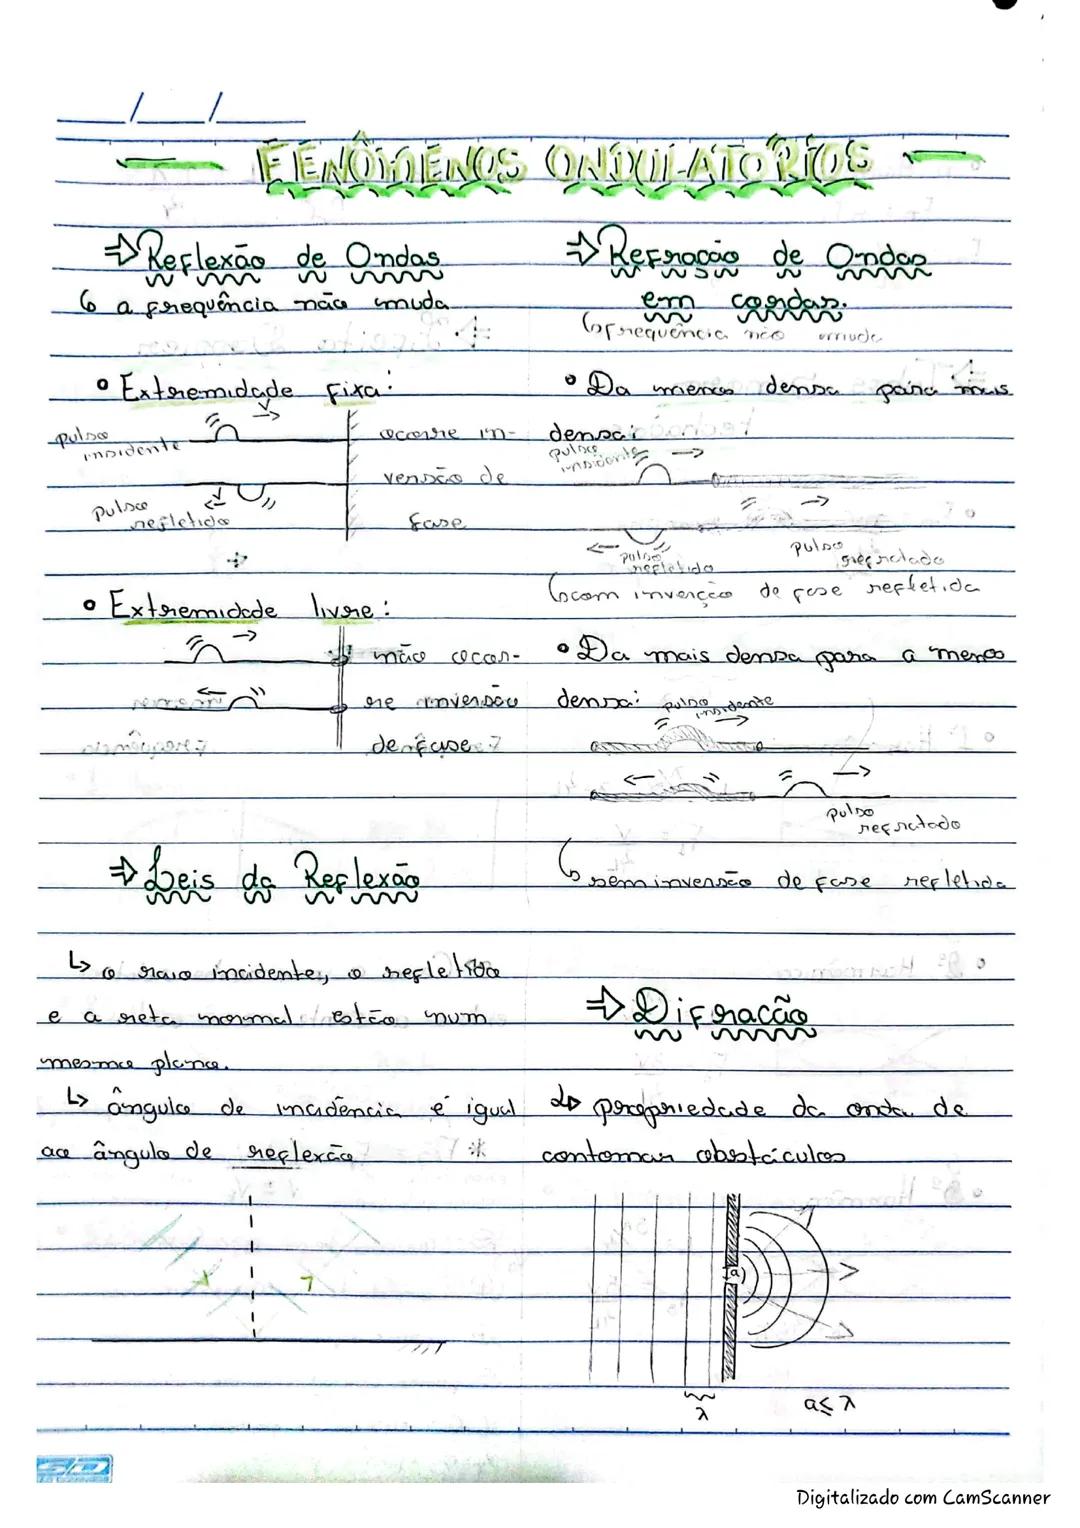 FENÔMENOS ONDULATÓRIOS
⇒ Reflexão de Ondas
↳ a frequência não muda
• Extremidade fixa:
pulso incidente
V
ocorre in-
versão de
fase
V
pulso refletido
• Extremidade livre:
não ocor-
re inversão
de fase
⇒ Leis da Reflexão
↳ o raio incidente, o refletido
e a reta normal estão num
mesmo plano.
↳ ângulo de incidência é igual
ao ângulo de reflexão *
⇒ Refração de Ondas
em cordas.
↳ frequência não muda
• Da menos densa para mais
densa:
pulso incidente
pulso refletido
pulso refratado
↳ com inverção de fase refletida
• Da mais densa para a menos
densa:
pulso incidente
pulso refratado
↳ sem inversão de fase refletida
⇒ Difração
↳ propriedade da onda de
contornar obstáculos
a
λ
a≤λ
SD
Digitalizado com CamScanner